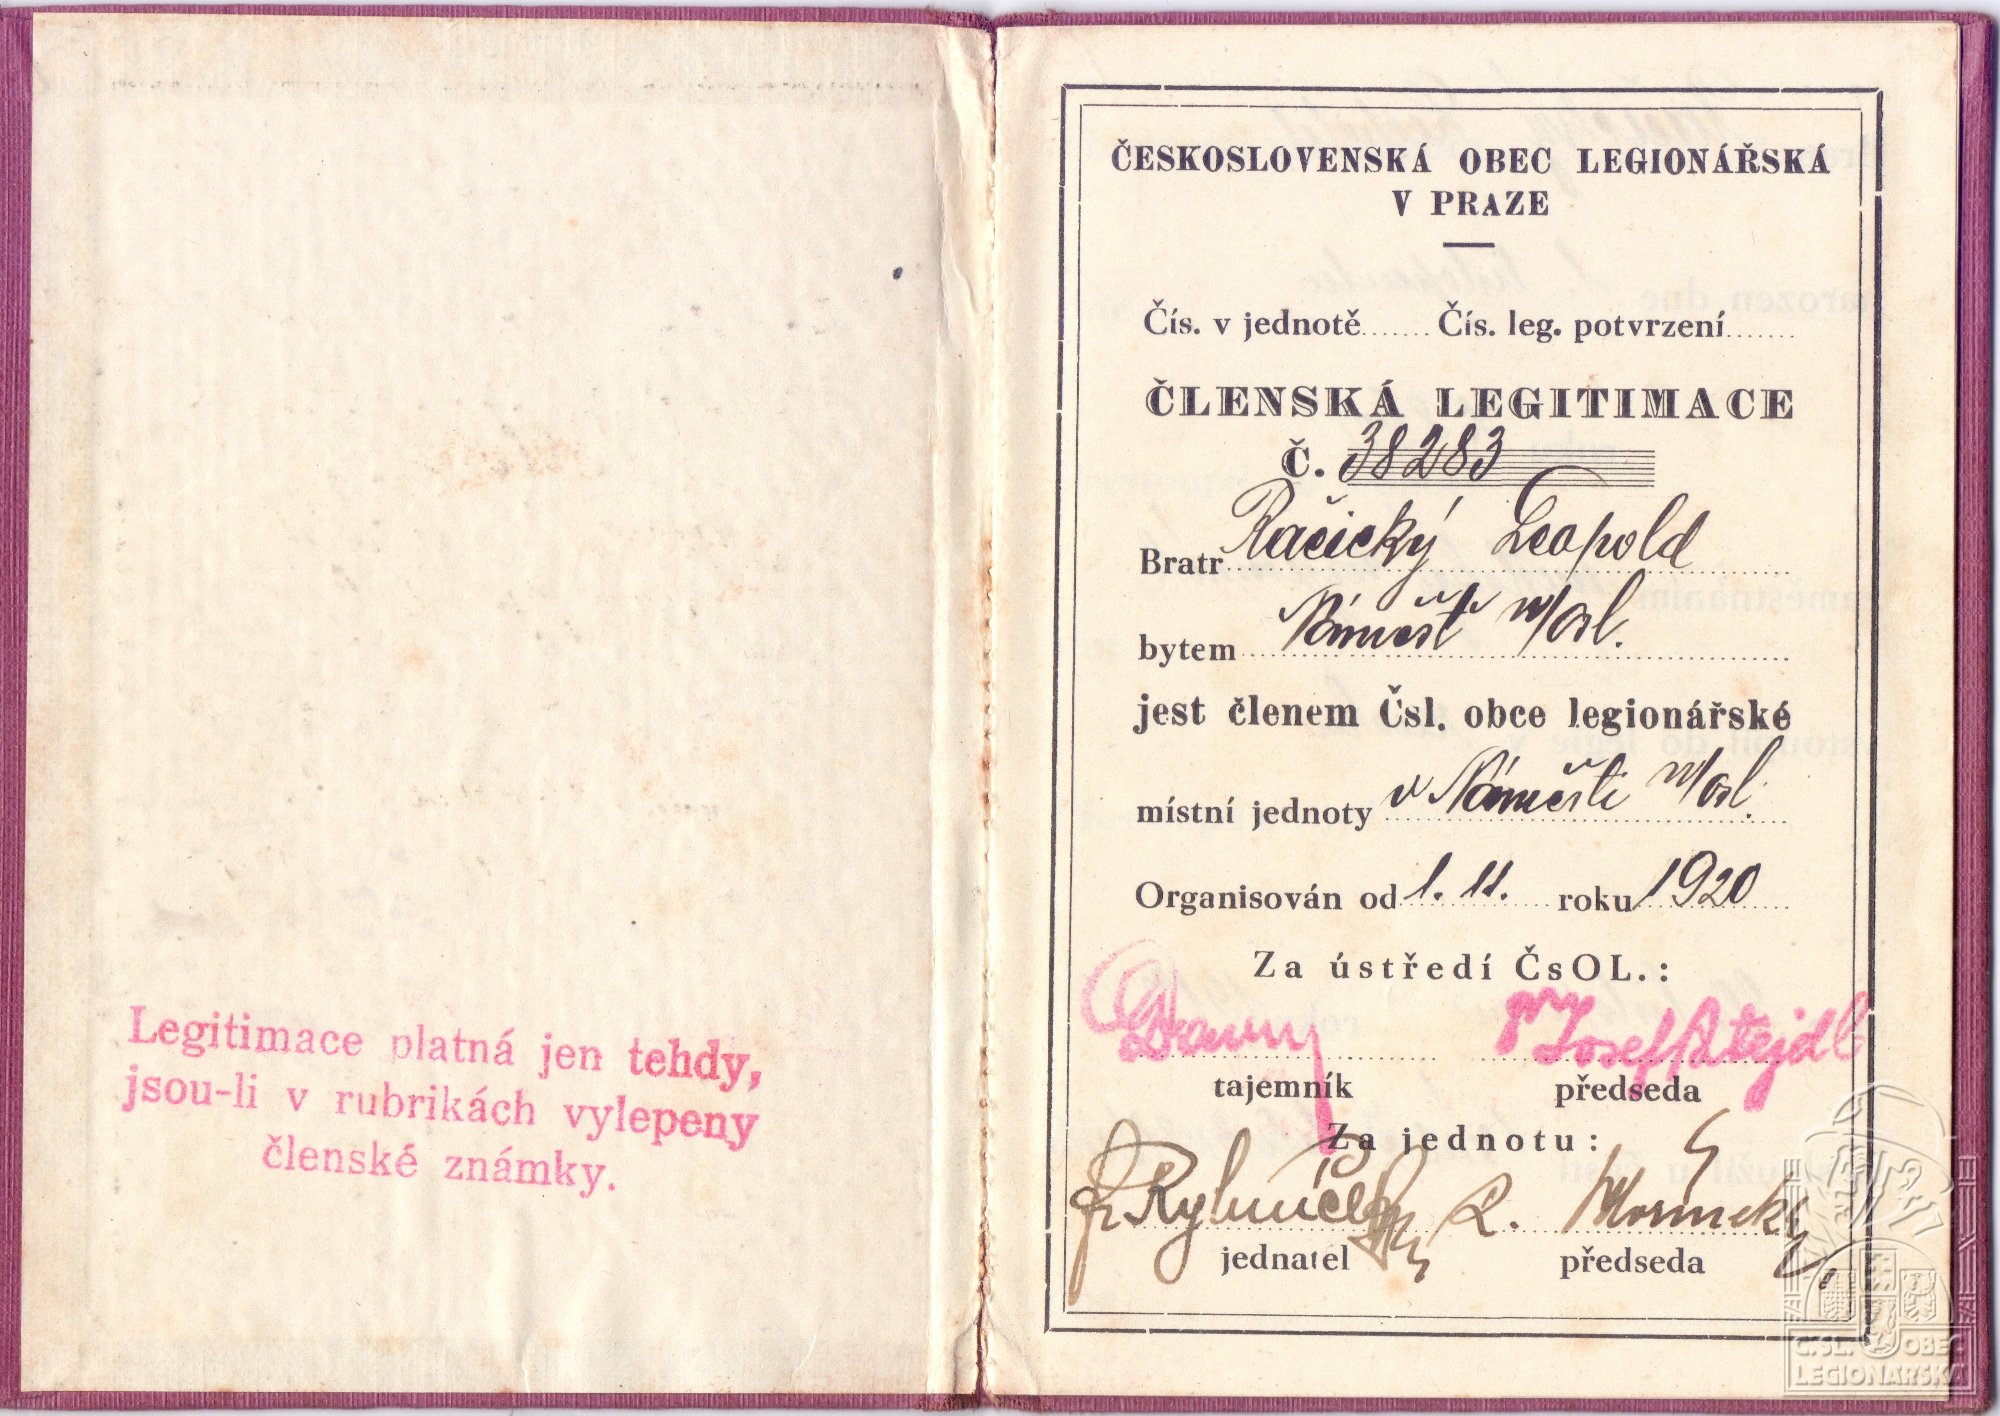 Legitimace platná jen tehdy,
jsou-li v rubrikách vylepeny
členské známky.
ČESKOSLOVENSKÁ OBEC LEGIONÁŘSKÁ
V PRAZE
Čís. v jednotě........ Čís. leg. potvrzení........
ČLENSKÁ LEGITIMACE
Č. 38283
Bratr Račický Leopold
bytem Náměšť n/Osl.
jest členem Čsl. obce legionářské
místní jednoty v Náměšti n/Osl.
Organisován od 1. 11. roku 1920
Za ústředí ČsOL.:
Josef Patejdl
tajemník předseda
Za jednotu:
Fr. Rybníček R.
jednatel předseda
Č.SL. OBEC
LEGIONÁŘSKÁ